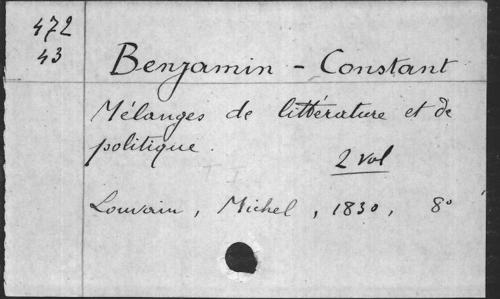 472
43
Benjamin - Constant
Mélanges de littérature et de
politique.
2 vol
Louvain, Michel, 1830, 8°